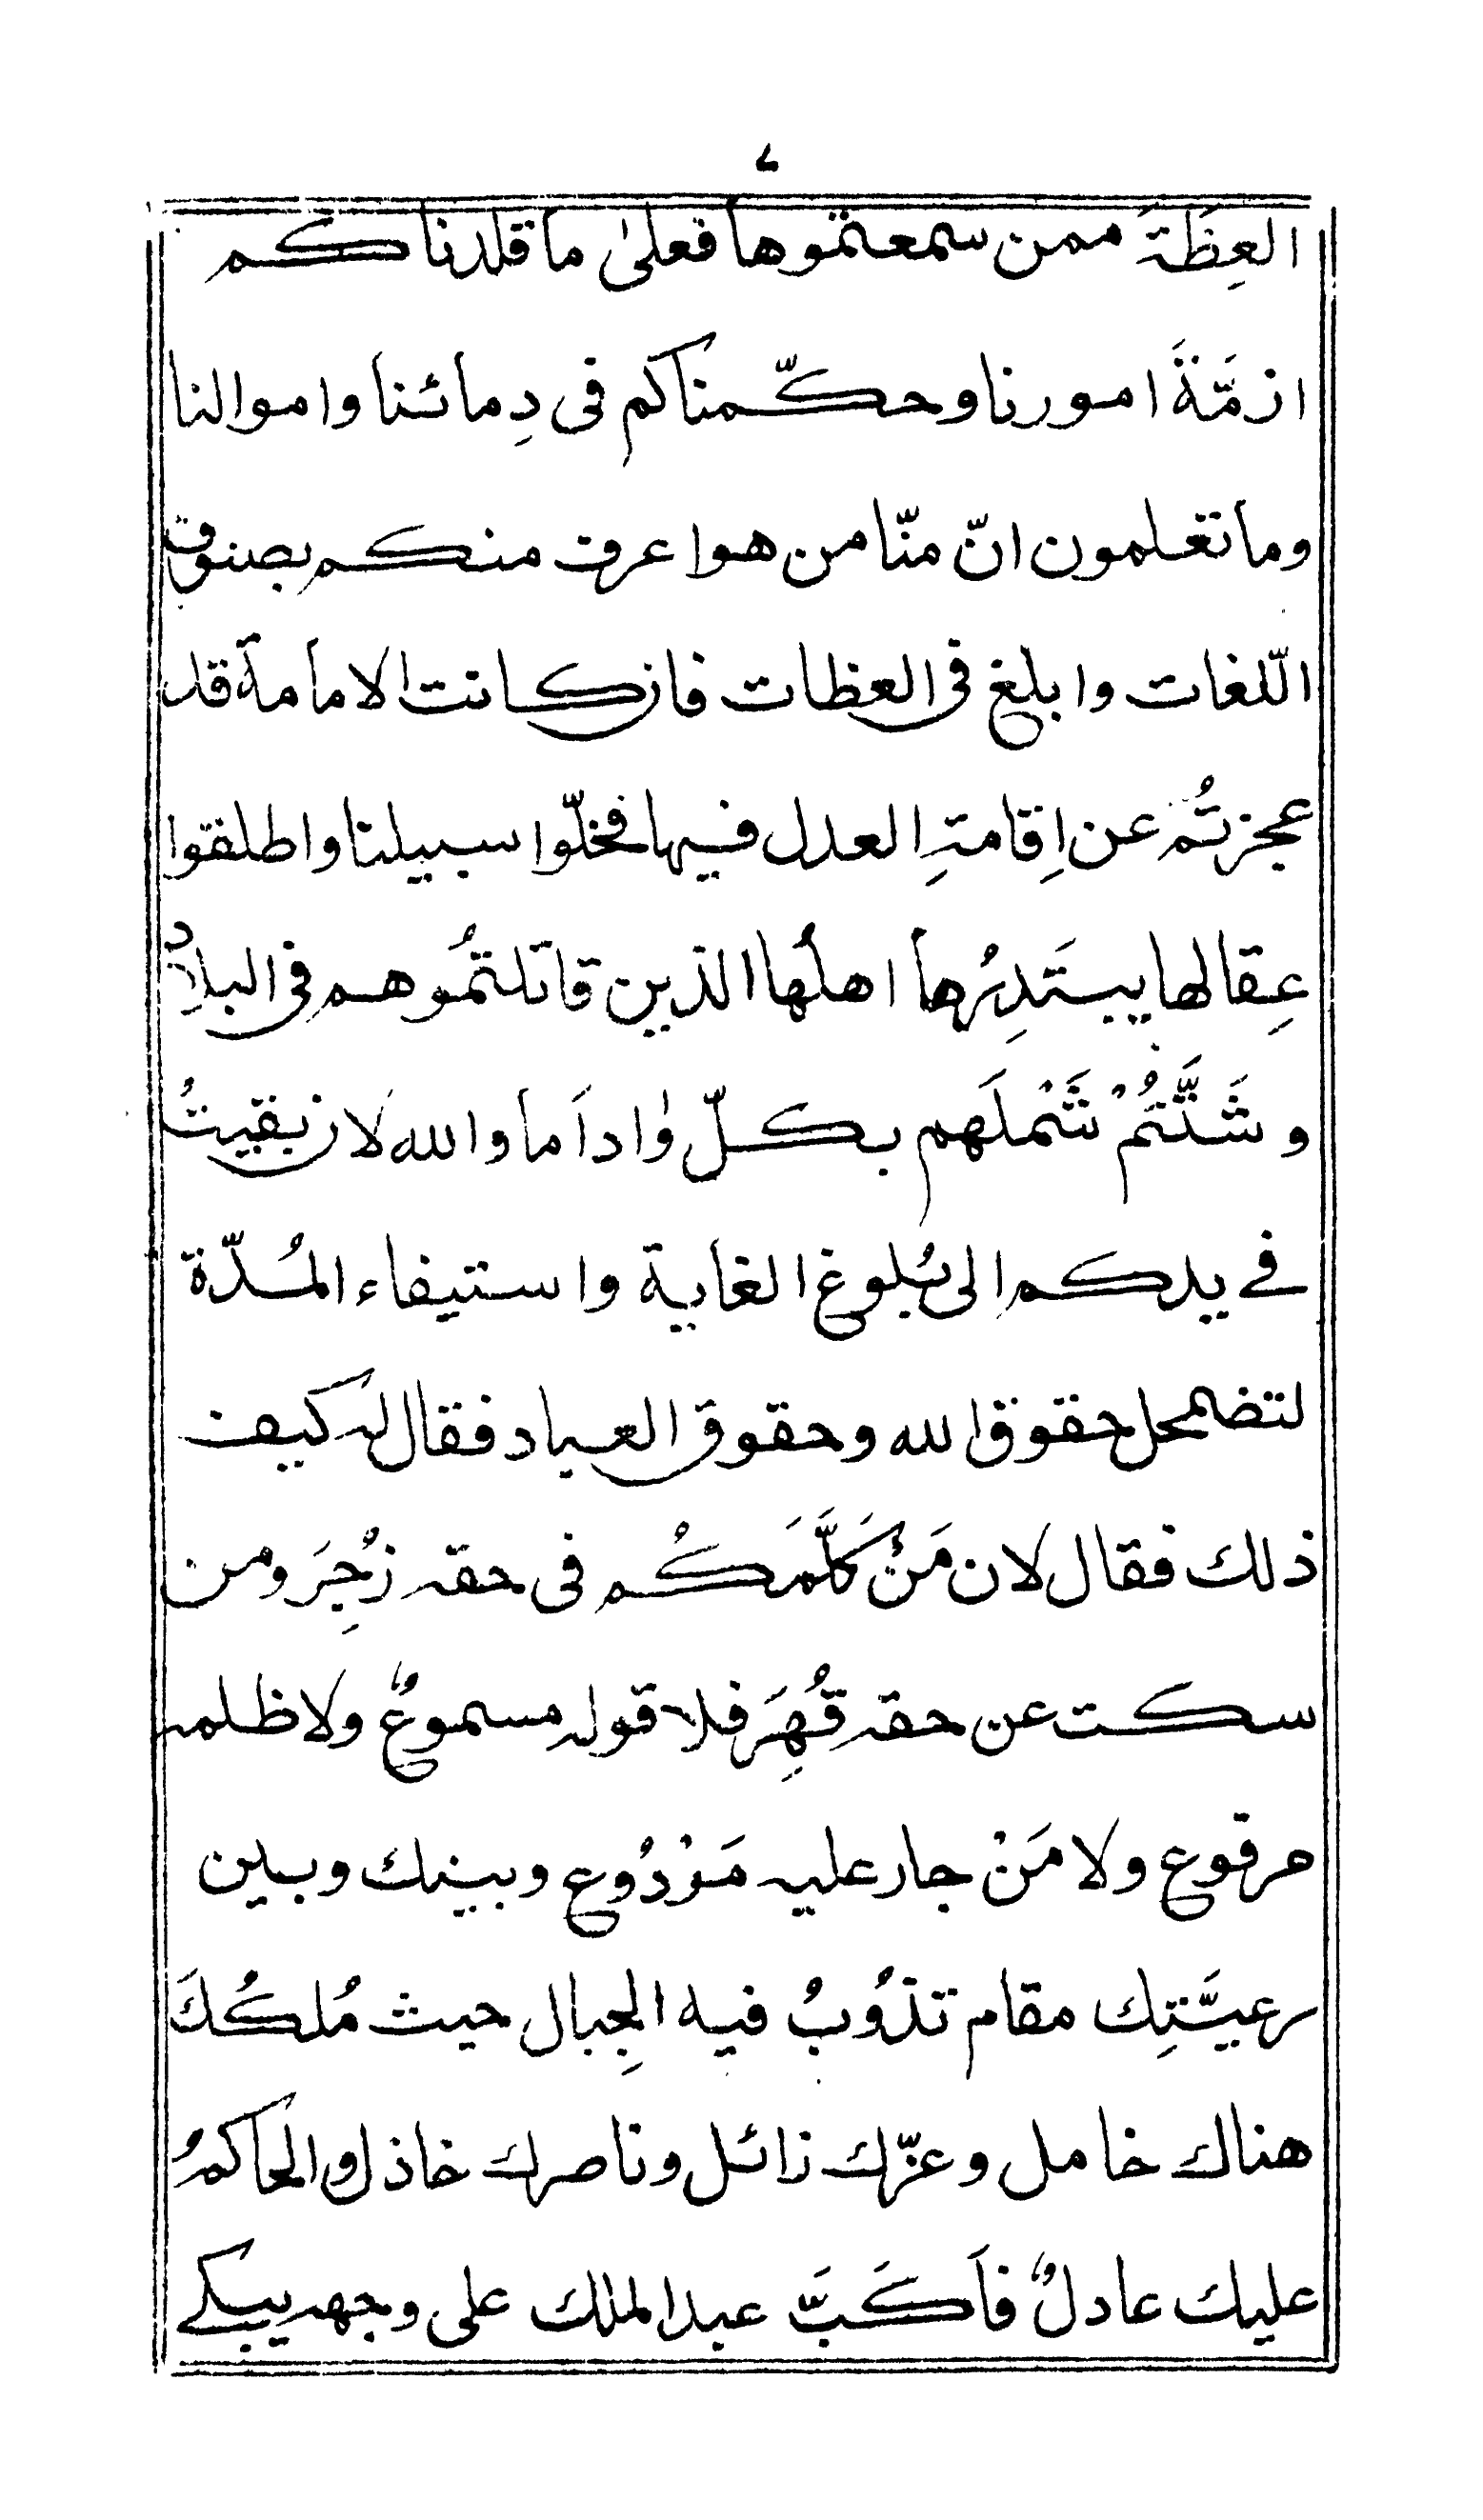 ٧
العِظَةَ ممن سمعتموها فعلىٰ ما قلدناكم
ازمَّةَ امورنا وحكّمناكم فى دِمائنا واموالنا
وما تعلمون انّ منّا من هو اعرف منكم بصنوف
اللّغات وابلغ فى العظات فان كانت الامامة قد
عجزتُم عن اِقامةِ العدل فيها فخلّوا سبيلنا واطلقوا
عِقالها يبتَدِرُها اهلُها الذين قاتلتمُوهم فى البلادِ
وشَتَّتُّمْ شَمْلَهم بكلّ وٰاد اَما والله لَان بقيتُ
فے يدكم الى بُلوغ الغاية واستيفاء المُدّة
لتضمحل حقوق الله وحقوق العباد فقال له كيف
ذلك فقال لان مَنْ كَلَّمَكُم فى حقه زُجِرَ ومن
سكت عن حقه قُهِرَ فلا قوله مسموعٌ ولا ظلمه
مرفوع ولا مَنْ جار عليه مَرْدُوع وبينك وبين
رعيَّتِك مقام تذُوبُ فيه الجِبال حيث مُلكُكَ
هناك خامل وعزّك زائل وناصرك خاذل والحاكمُ
عليك عادلٌ فاَكَبَّ عبد الملك على وجهه يبكے